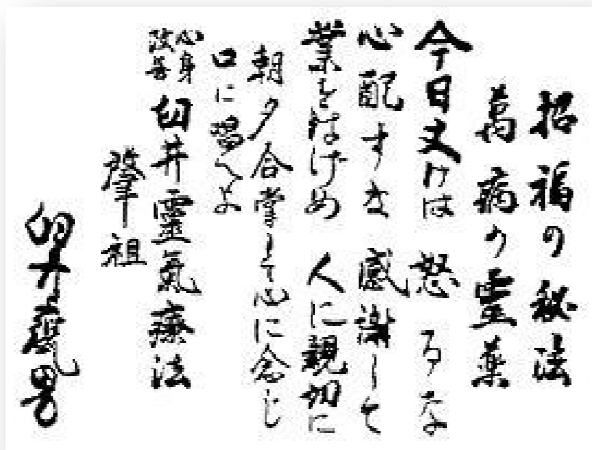 招福の秘法
萬病の霊薬
今日丈けは 怒るな
心配すな 感謝して
業をはげめ 人に親切に
朝夕合掌して心に念じ
口に唱へよ
心身
改善
臼井靈氣療法
肇祖
臼井甕男